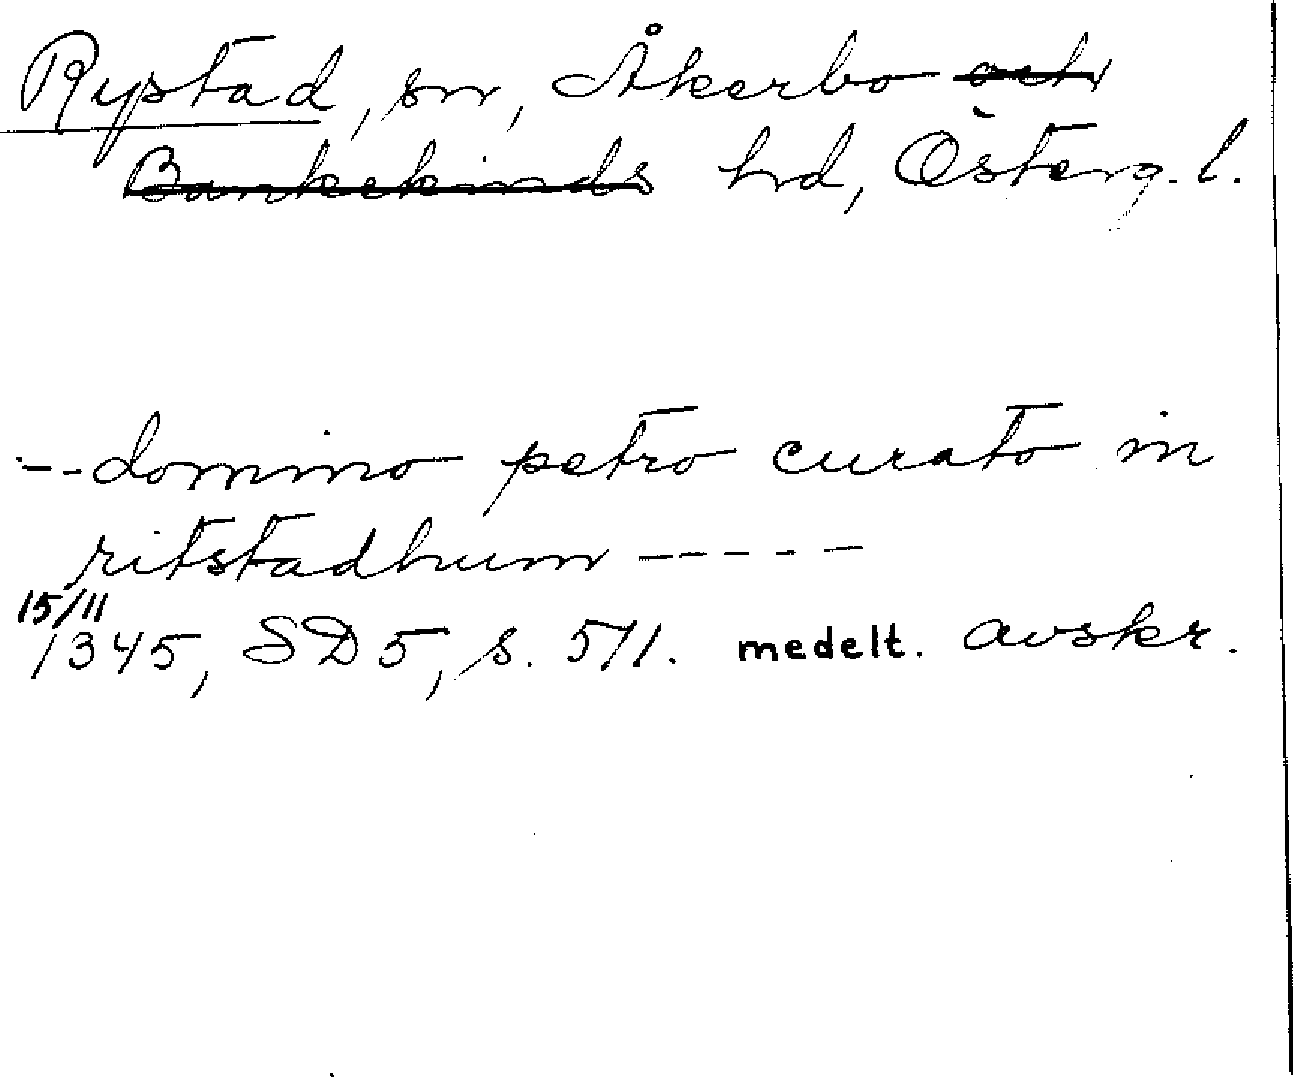 Rystad, sn, Åkerbo och
Bankekinds hd, Österg. l.
--domino petro curato in
ritstadhum -----
15/11
1345, SD 5, s. 571. medelt. avskr.